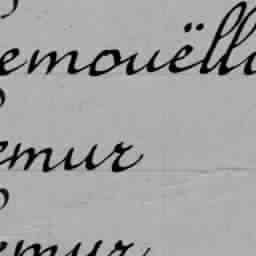 emouëll
emur
emur